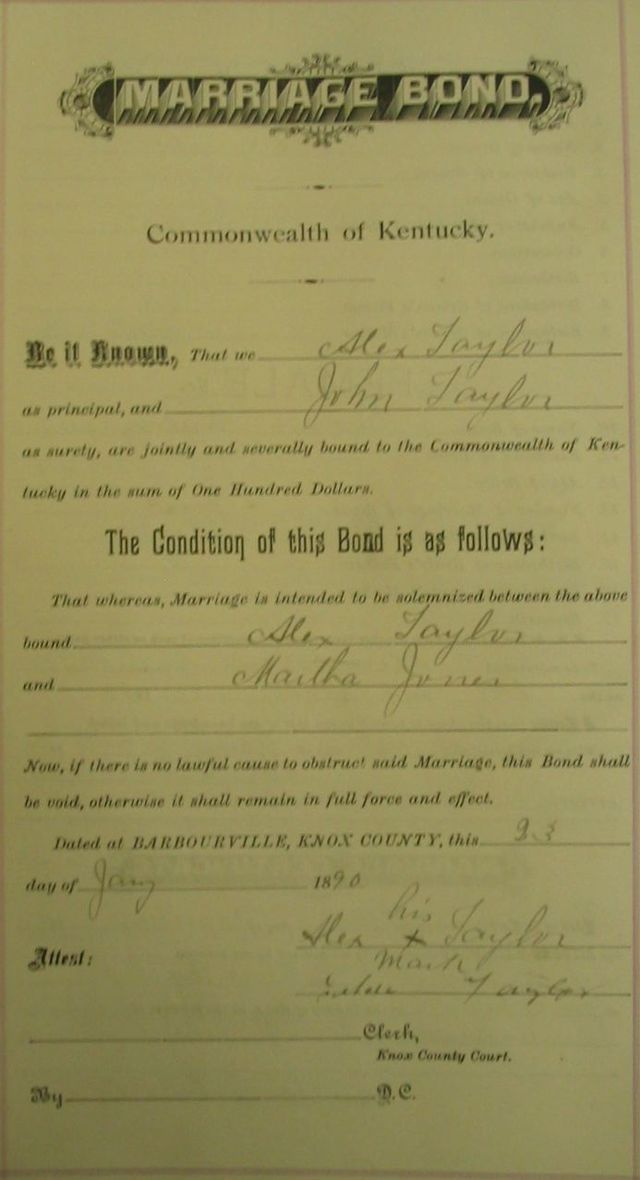 MARRIAGE BOND,
Commonwealth of Kentucky.
Be it Known, That we Alex Taylor
as principal, and John Taylor
as surety, are jointly and severally bound to the Commonwealth of Ken-
tucky in the sum of One Hundred Dollars.
The Condition of this Bond is as follows:
That whereas, Marriage is intended to be solemnized between the above
bound Alex Taylor
and Martha Jones
Now, if there is no lawful cause to obstruct said Marriage, this Bond shall
be void, otherwise it shall remain in full force and effect.
Dated at BARBOURVILLE, KNOX COUNTY, this 23
day of Jany 1890
his
Alex x Taylor
Attest: mark
Taylor
Clerk,
Knox County Court.
By D.C.